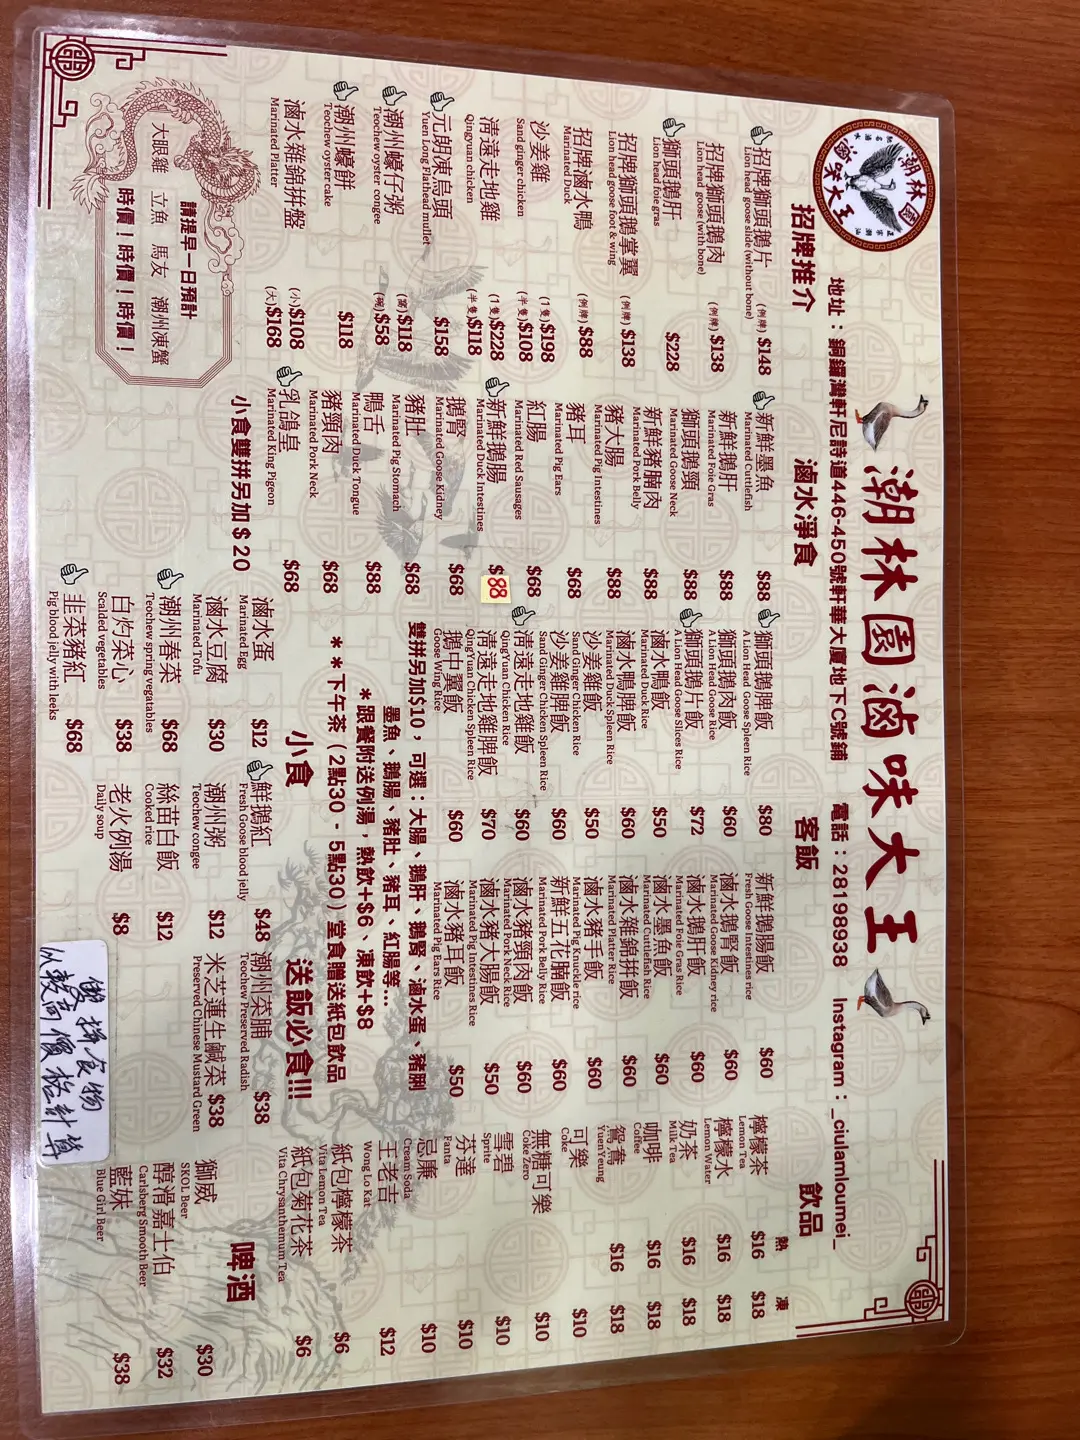 潮林園滷味大王
地址：銅鑼灣軒尼詩道446-450號軒華大廈地下C號鋪 電話：28198938 Instagram：_ciulamloumei_
招牌推介
招牌獅頭鵝片 (例牌) $148
Lion head goose slide (without bone)
招牌獅頭鵝肉 (例牌) $138
Lion head goose (with bone)
獅頭鵝肝 $228
Lion head foie gras
招牌獅頭鵝掌翼 (例牌) $138
Lion head goose foot & wing
招牌滷水鴨 (例牌) $88
Marinated Duck
沙姜雞 (1隻) $198
Sand ginger chicken (半隻) $108
清遠走地雞 (1隻) $228
Qingyuan chicken (半隻) $118
元朗凍烏頭 $158
Yuen Long Flathead mullet
潮州蠔仔粥 (窩) $118
Teochew oyster congee (碗) $58
潮州蠔餅 $118
Teochew oyster cake
滷水雜錦拼盤 (小) $108
Marinated Platter (大) $168
請提早一日預計
大眼雞 立魚 馬友 潮州凍蟹
時價！時價！時價！
滷水淨食
新鮮墨魚 $88
Marinated Cuttlefish
新鮮鵝肝 $88
Marinated Foie Gras
獅頭鵝頸 $88
Marinated Goose Neck
新鮮豬腩肉 $88
Marinated Pork Belly
豬大腸 $88
Marinated Pig Intestines
豬耳 $68
Marinated Pig Ears
紅腸 $68
Marinated Red Sausages
新鮮鵝腸 $88
Marinated Duck Intestines
鵝腎 $68
Marinated Goose Kidney
豬肚 $68
Marinated Pig Stomach
鴨舌 $88
Marinated Duck Tongue
豬頸肉 $68
Marinated Pork Neck
乳鴿皇 $68
Marinated King Pigeon
小食雙拼另加$20
客飯
獅頭鵝脾飯 $80
A Lion Head Goose Spleen Rice
獅頭鵝肉飯 $60
A Lion Head Goose Rice
獅頭鵝片飯 $72
A Lion Head Goose Slices Rice
滷水鴨飯 $50
Marinated Duck Rice
滷水鴨脾飯 $60
Marinated Duck Spleen Rice
沙姜雞飯 $50
Sand Ginger Chicken Rice
沙姜雞脾飯 $60
Sand Ginger Chicken Spleen Rice
清遠走地雞飯 $60
QingYuan Chicken Rice
清遠走地雞脾飯 $70
QingYuan Chicken Spleen Rice
鵝中翼飯 $60
Goose Wing Rice
新鮮鵝腸飯 $60
Fresh Goose Intestines rice
滷水鵝腎飯 $60
Marinated Goose Kidney rice
滷水鵝肝飯 $60
Marinated Foie Gras Rice
滷水墨魚飯 $60
Marinated Cuttlefish Rice
滷水雜錦拼飯 $60
Marinated Plater Rice
滷水豬手飯 $60
Marinated Pig Knuckle rice
新鮮五花腩飯 $60
Marinated Pork Belly Rice
滷水豬頸肉飯 $60
Marinated Pork Neck Rice
滷水豬大腸飯 $50
Marinated Pig Intestines Rice
滷水豬耳飯 $50
Marinated Pig Ears Rice
雙拼另加$10，可選：大腸、鵝肝、鵝腎、滷水蛋、豬脷
墨魚、鵝腸、豬肚、豬耳、紅腸等...
＊跟餐附送例湯，熱飲+$6、凍飲+$8
＊＊下午茶（2點30 - 5點30）堂食贈送紙包飲品
小食 送飯必食!!!
滷水蛋 $12
Marinated Egg
滷水豆腐 $30
Marinated Tofu
潮州春菜 $68
Teochew spring vegetables
白灼菜心 $38
Scalded vegetables
韭菜豬紅 $68
Pig blood jelly with leeks
鮮鵝紅 $48
Fresh Goose blood jelly
潮州粥 $12
Teochew congee
絲苗白飯 $12
Cooked rice
老火例湯 $8
Daily soup
潮州菜脯 $38
Teochew Preserved Radish
米芝蓮生鹹菜 $38
Preserved Chinese Mustard Green
飲品
熱 凍
檸檬茶 $16 $18
Lemon Tea
檸檬水 $16 $18
Lemon Water
奶茶 $16 $18
Milk Tea
咖啡 $16 $18
Coffee
鴛鴦 $16 $18
YuenYeung
可樂 $10
Coke
無糖可樂 $10
Coke Zero
雪碧 $10
Sprite
芬達 $10
Fanta
忌廉 $10
Cream Soda
王老吉 $12
Wong Lo Kat
紙包檸檬茶 $6
Vita Lemon Tea
紙包菊花茶 $6
Vita Chrysanthemum Tea
啤酒
獅威 $30
SKOL Beer
醇滑嘉士伯 $32
Carlsberg Smooth Beer
藍妹 $38
Blue Girl Beer
拼食物
以較高價格計算